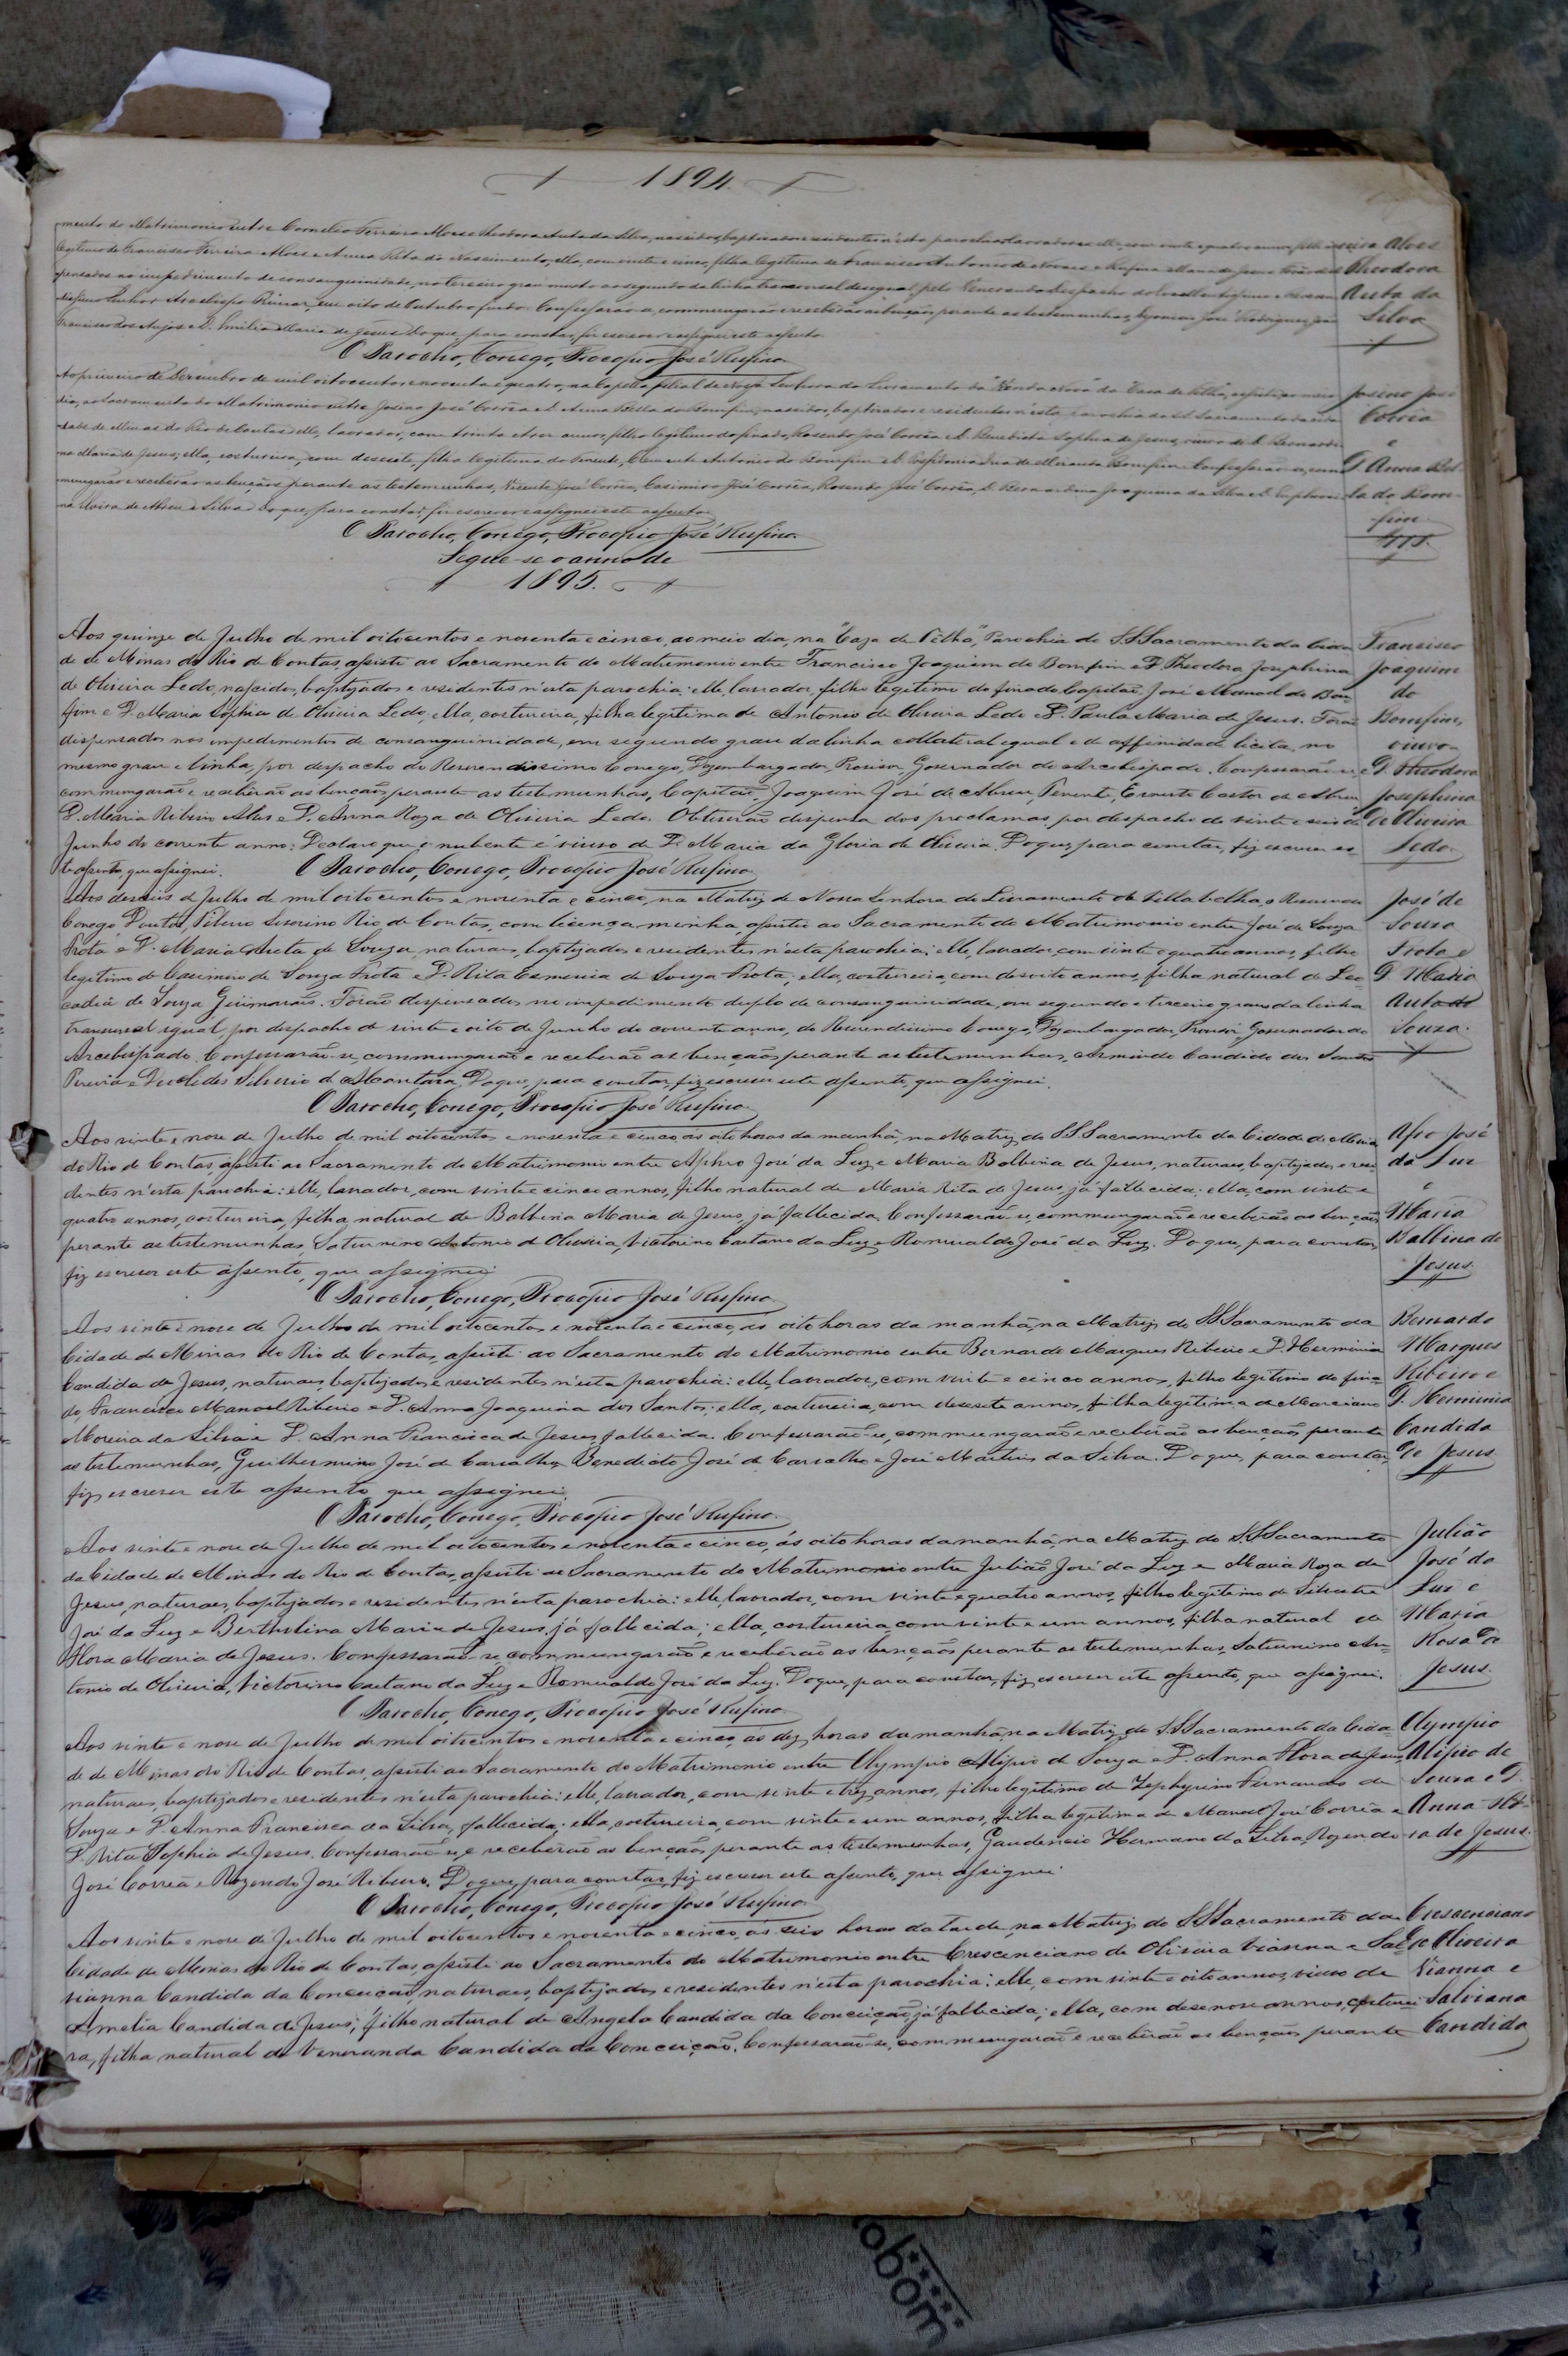 1894.
mento do Matrimonio entre Cornelio Ferreira Alves e Theodora Auta da Silva, nascidos, baptisados e residentes n'esta parochia: elle, lavrador, com vinte e quatro annos, filho
legitimo de Francisco Ferreira Alves e Anna Rita do Nascimento; ella, com vinte e cinco, filha legitima de Francisco Antonio de Novaes e Rufina Maria de Jesus.
pensados no impedimento de consanguinidade, no terceiro grau mixto ao segundo da linha transversal desigual, pelo Venerando despacho do Excellentissimo e
dissimo Senhor Arcebispo Primaz, em oito de Outubro findo. Confessarão-se, commungarão e receberão as bençãos perante as testemunhas, José Rodrigues
Francisco dos Anjos e D. Emilia Maria de Jesus. Do que, para constar, fiz escrever e assignei este assento.
O Parocho, Conego, Procopio José Rufino.
reira Alves
Theodora
Auta da
Silva
Ao primeiro de Dezembro de mil oitocentos e noventa e quatro, na Capella filial de Nossa Senhora do Livramento da "Venda Nova" da "Casa de Telha", assisti, ao meio
dia, ao Sacramento do Matrimonio entre Josino José Corrêa e D. Anna Bella do Bomfim, nascidos, baptisados e residentes n'esta parochia do S. Sacramento da cida
dade de Minas do Rio de Contas: elle, lavrador, com trinta e tres annos, filho legitimo do finado, Rosendo José Corrêa e D. Benedicta Sophia de Jesus, viuvo de D. Bernardi
na Maria de Jesus; ella, costureira, com desesete, filha legitima do Tenente, Clemente Antonio do Bomfim e D. Bomfim. Confessarão-se, com
mungarão e receberão as bençãos perante as testemunhas, Vicente José Corrêa, Casimiro José Corrêa, Rosendo José Corrêa, D. Bernardina Joaquina da Silva e D.
na Moira de Abreu e Silva. Do que, para constar, fiz escrever e assignei este assento.
O Parocho, Conego, Procopio José Rufino.
Josino José
Corrêa
e
D. Anna Bel-
la do Bom-
fim
Segue-se o anno de
1895.
Aos quinze de Julho de mil oitocentos e noventa e cinco, ao meio dia, na "Caza de Telha", Parochia do S. S. Sacramento da Cida
de de Minas do Rio de Contas, assisti ao Sacramento do Matrimonio entre Francisco Joaquim do Bomfim e D. Theodora Josephina
de Oliveira Ledo, nascidos, baptizados e residentes n'esta parochia: elle, lavrador, filho legitimo do finado Capitão, José Manoel do Bom-
fim e D. Maria Sophia de Oliveira Ledo; ella, costureira, filha legitima de Antonio de Oliveira Ledo e D. Paula Maria de Jesus. Forão
dispensados nos impedimentos de consanguinidade, em segundo grau da linha collateral egual e de affinidade licita, no
mesmo grau e linha, por despacho do Reverendissimo Conego, Dezembargador, Provisor, Governador do Arcebispado. Confessarão-se,
commungarão e receberão as bençãos, perante as testemunhas, Capitão, Joaquim José de Abreu, Tenente, Ernesto Castor de Abreu
D. Maria Ribeiro Alves e D. Anna Roza de Oliveira Ledo. Obtiverão dispensa dos proclamas, por despacho de vinte e seis de
Junho do corrente anno. Declaro que o nubente é viuvo de D. Maria da Gloria de Oliveira. Do que, para constar, fiz escrever es-
te assento, que assignei. O Parocho, Conego, Procopio José Rufino.
Francisco
Joaquim
do
Bomfim,
viuvo
e D. Theodora
Josephina
de Oliveira
Ledo.
Aos deseseis de Julho de mil oitocentos e noventa e cinco, na Matriz de Nossa Senhora do Livramento de Villa Velha, o Reverendo
Conego, Doutor, Tiberio Severino Rio de Contas, com licença minha, assistiu ao Sacramento do Matrimonio entre José de Souza
Trota e D. Maria Aucta de Souza, naturaes, baptizados e residentes n'esta parochia: elle, lavrador, com vinte e quatro annos, filho
legitimo de Casimiro de Souza Trota e D. Rita Esmenia de Souza Trota; ella, costureira, com desoito annos, filha natural de Leo-
cadia de Souza Guimarães. Forão dispensados no impedimento duplo de consanguinidade, em segundo e terceiro graus da linha
transversal egual, por despacho de vinte e oito de Junho do corrente anno, do Reverendissimo Conego, Dezembargador, Provisor, Governador do
Arcebispado. Confessarão-se, commungarão e receberão as bençãos perante as testemunhas, Arminio Candido dos Santos
Pereira e Deocledes Silverio d'Alcantara. Do que, para constar, fiz escrever este assento, que assignei.
O Parocho, Conego, Procopio José Rufino.
José de
Souza
Trota e
D. Maria
Auta de
Souza.
Aos vinte e nove de Julho de mil oitocentos e noventa e cinco, ás oito horas da manhã, na Matriz do S. S. Sacramento da Cidade de Minas
do Rio de Contas, assisti ao Sacramento do Matrimonio entre Aphro José da Luz e Maria Balbina de Jesus, naturaes, baptizados e resi
dentes n'esta parochia: elle, lavrador, com vinte e cinco annos, filho natural de Maria Rita de Jesus, já fallecida; ella, com vinte e
quatro annos, costureira, filha natural de Balbina Maria de Jesus, já fallecida. Confessarão-se, commungarão e receberão as bençãos
perante as testemunhas, Saturnino Antonio d'Oliveira, Victorino Caetano da Luz e Romualdo José da Luz. Do que, para constar,
fiz escrever este assento, que assignei.
O Parocho, Conego, Procopio José Rufino.
Afro José
da Luz
e
Maria
Balbina de
Jesus.
Aos vinte e nove de Julho de mil oitocentos e noventa e cinco, ás oito horas da manhã, na Matriz do S. S. Sacramento da
Cidade de Minas do Rio de Contas, assisti ao Sacramento do Matrimonio entre Bernardo Marques Ribeiro e D. Herminia
Candida de Jesus, naturaes, baptizados e residentes n'esta parochia: elle, lavrador, com vinte e cinco annos, filho legitimo do fina-
do, Francisco Manoel Ribeiro e D. Anna Joaquina dos Santos; ella, costureira, com desesete annos, filha legitima de Marciano
Moreira da Silva e D. Anna Francisca de Jesus, fallecida. Confessarão-se, commungarão e receberão as bençãos perante
as testemunhas, Guilhermino José de Carvalho, Benedicto José de Carvalho e José Martins da Silva. Do que, para constar,
fiz escrever este assento, que assignei.
O Parocho, Conego, Procopio José Rufino.
Bernardo
Marques
Ribeiro e
D. Herminia
Candida
de Jesus
Aos vinte e nove de Julho de mil oitocentos e noventa e cinco, ás oito horas da manhã, na Matriz do S. S. Sacramento
da Cidade de Minas do Rio de Contas, assisti ao Sacramento do Matrimonio entre Julião José da Luz e Maria Roza de
Jesus, naturaes, baptizados e residentes n'esta parochia: elle, lavrador, com vinte e quatro annos, filho legitimo de Silvestre
José da Luz e Bertholina Maria de Jesus, já fallecida; ella, costureira, com vinte e um annos, filha natural de
Flora Maria de Jesus. Confessarão-se, commungarão e receberão as bençãos perante as testemunhas, Saturnino An-
tonio de Oliveira, Victorino Caetano da Luz e Romualdo José da Luz. Do que, para constar, fiz escrever este assento, que assignei.
O Parocho, Conego, Procopio José Rufino.
Julião
José da
Luz e
Maria
Rosa de
Jesus.
Aos vinte e nove de Julho de mil oitocentos e noventa e cinco, ás dez horas da manhã, na Matriz do S. S. Sacramento da Cida
de de Minas do Rio de Contas, assisti ao Sacramento do Matrimonio entre Olympio Alipio de Souza e D. Anna Flora de Jesus,
naturaes, baptizados e residentes n'esta parochia: elle, lavrador, com vinte e trez annos, filho legitimo de Zephyrino Fernandes de
Souza e D. Anna Francisca da Silva, fallecida; ella, costureira, com vinte e um annos, filha legitima de Manoel José Corrêa e
D. Rita Sophia de Jesus. Confessarão-se, e receberão as bençãos perante as testemunhas, Gaudencio Hermano da Silva, Rozendo
José Corrêa e Rozendo José Ribeiro. Do que, para constar, fiz escrever este assento, que assignei.
O Parocho, Conego, Procopio José Rufino.
Olympio
Alipio de
Souza e D.
Anna Flo-
ra de Jesus.
Aos vinte e nove de Julho de mil oitocentos e noventa e cinco, ás seis horas da tarde, na Matriz do S. S. Sacramento da
Cidade de Minas do Rio de Contas, assisti ao Sacramento do Matrimonio entre Crescenciano de Oliveira Vianna e Sal-
vianna Candida da Conceição, naturaes, baptizados e residentes n'esta parochia: elle, com vinte e oito annos, viuvo de
Amelia Candida de Jesus; filho natural de Angela Candida da Conceição, já fallecida; ella, com desenove annos, costurei
ra, filha natural de Veneranda Candida da Conceição. Confessarão-se, commungarão e receberão as bençãos perante
Crescenciano
de Oliveira
Vianna e
Salviana
Candida
obom